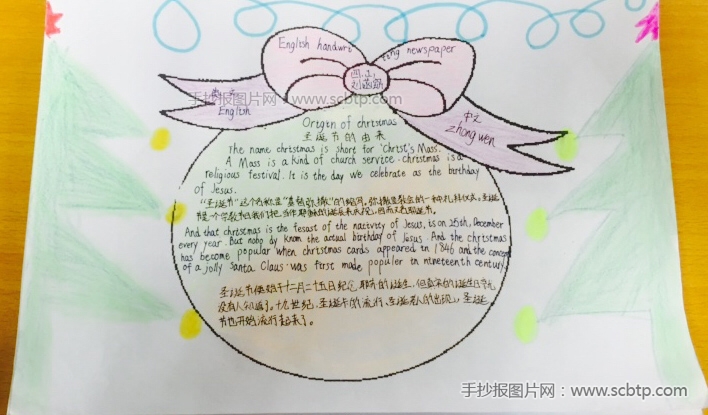 English handwri
ting newspaper
四.五.
英文
English
手抄报图片网:www.scbtp.com
中文
zhongwen
Origin of christmas
圣诞节的由来
The name christmas is short for "Christ's Mass.
A Mass is a kind of church service. christmas is a
religious festival. It is the day we celebrate as the birthday
of Jesus.
"圣诞节"这个名称是"基督弥撒"的缩写。弥撒是教会的一种礼拜仪式。圣诞
节是一个宗教节日我们把它当作耶稣的诞辰来庆祝,因而又名耶诞节。
And that christmas is the fesast of the nactivity of Jesus, is on 25th, December
every year. But nobo dy know the actual birthday of Jesus. And the christmas
has become popular when christmas cards appeared in 1846 and the concept
of a jolly Santa Claus was first made populer in nineteenth century.
圣诞节便始于十二月二十五日纪念耶稣的诞生,但真实的诞生日
没有人知道了。十九世纪,圣诞卡的流行、圣诞老人的出现,圣诞
节也开始流行起来了。
手抄报图片网:www.scbtp.com